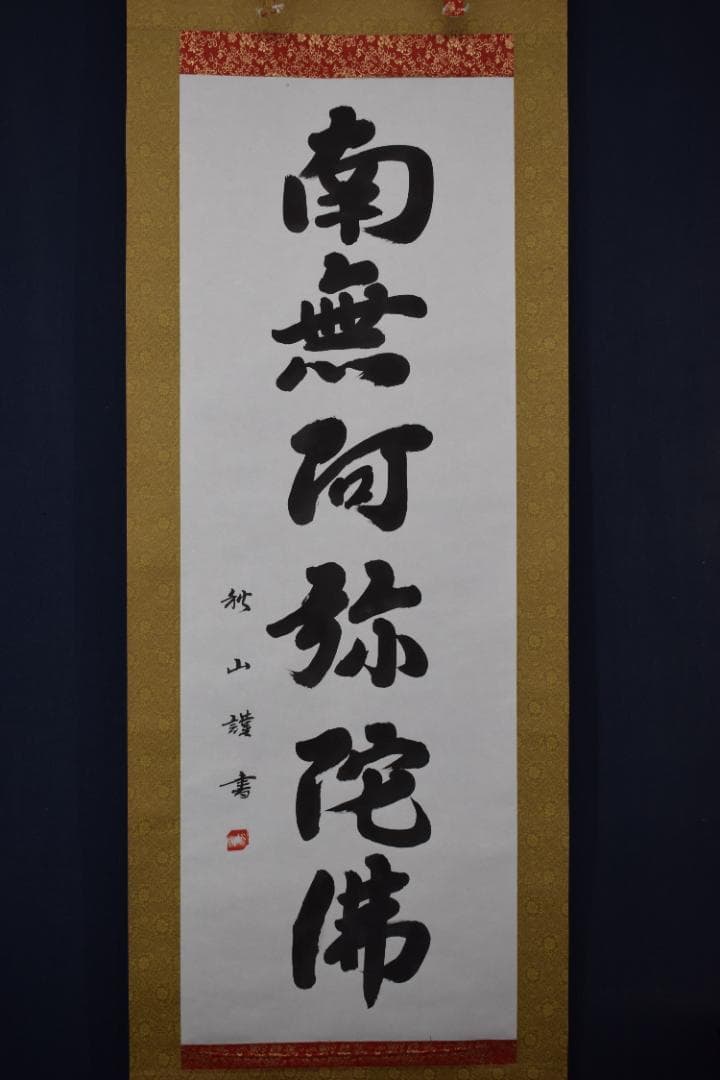 南無阿弥陀佛
秋山謹書